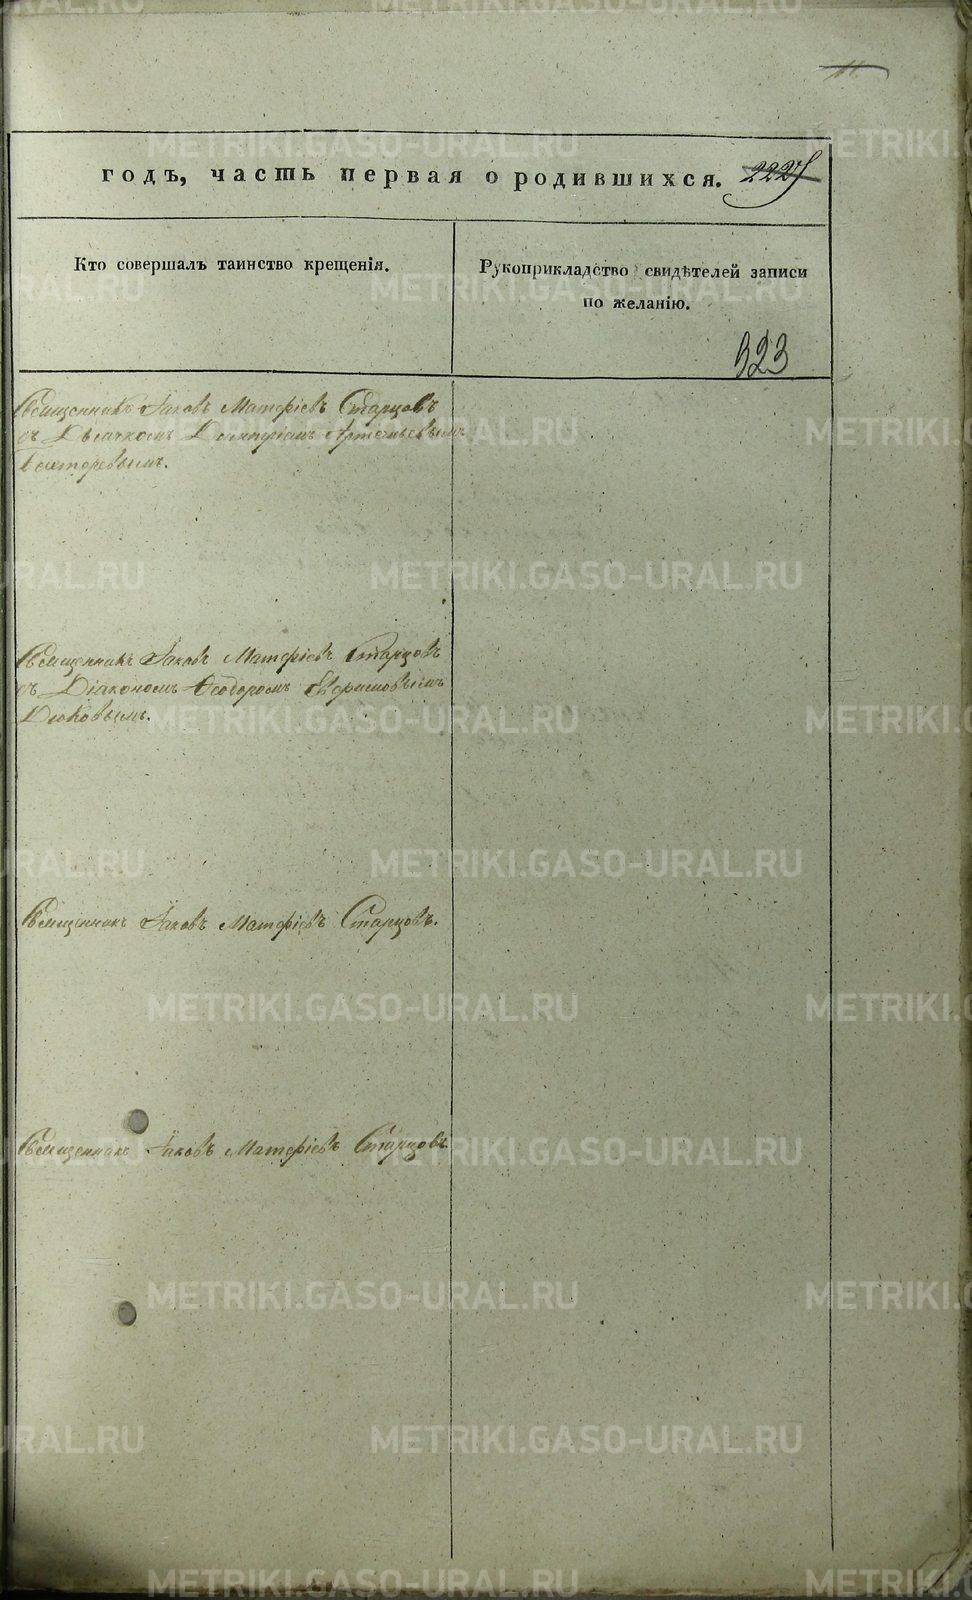 годъ, часть первая о родившихся. 222
Кто совершалъ таинство крещенія.
Рукоприкладство свидѣтелей записи
по желанію.
323
Священникъ Іаковъ Матѳіевъ Старцовъ
съ Дьячкомъ Димитріемъ Артемьевымъ
Священникъ Іаковъ Матѳіевъ Старцовъ
съ Діакономъ Ѳеодоромъ Ефимовымъ
Дюковымъ.
Священникъ Іаковъ Матѳіевъ Старцовъ.
Священникъ Іаковъ Матѳіевъ Старцовъ
METRIKI.GASO-URAL.RU